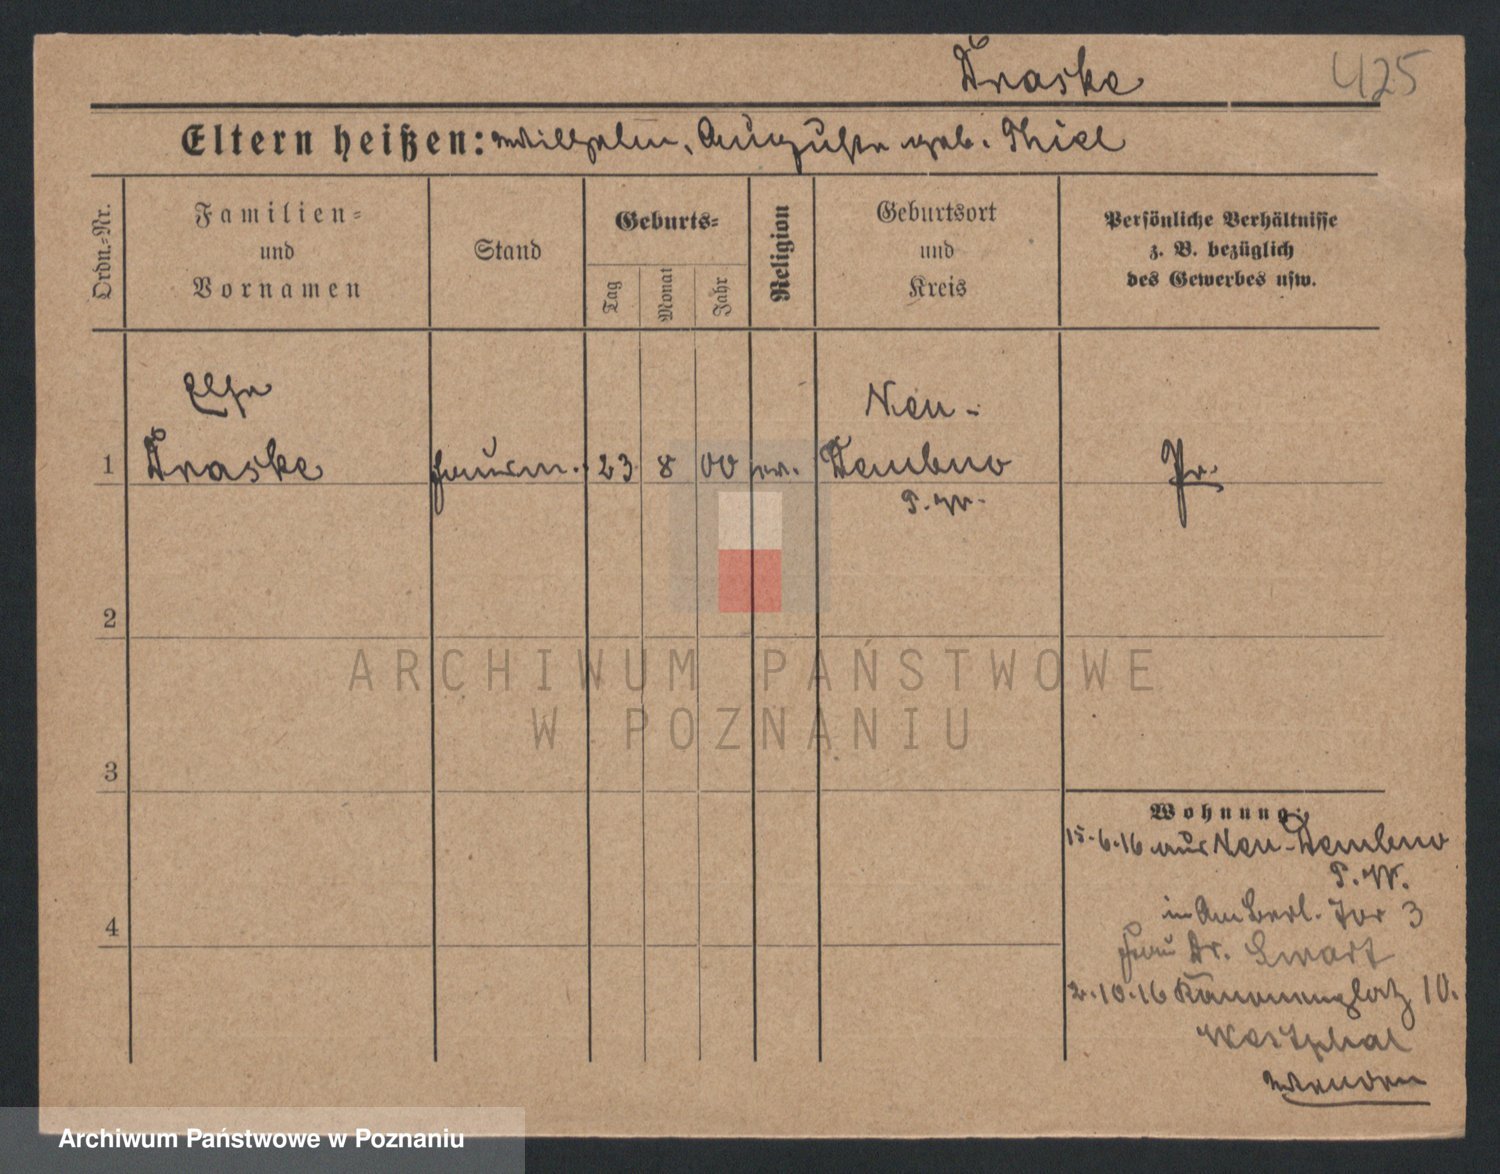 Draske 425
Eltern heißen: Wilhelm, Auguste geb. Thiel
Ordn.-Nr.
Familien-
und
Vornamen
Stand
Geburts-
Tag
Monat
Jahr
Religion
Geburtsort
und
Kreis
Persönliche Verhältnisse
z. B. bezüglich
des Gewerbes usw.
Else
Neu-
1 Draske Hausm. 23 8 00 ev. Dembno Pr.
P. W.
2
ARCHIWUM PAŃSTWOWE
W POZNANIU
3
Wohnung:
15.6.16 aus Neu-Dembno
P. W.
in Am Berl. Tor 3
4
Frau Dr. Swart
2.10.16 Kanonenplatz 10.
Westphal
Archiwum Państwowe w Poznaniu